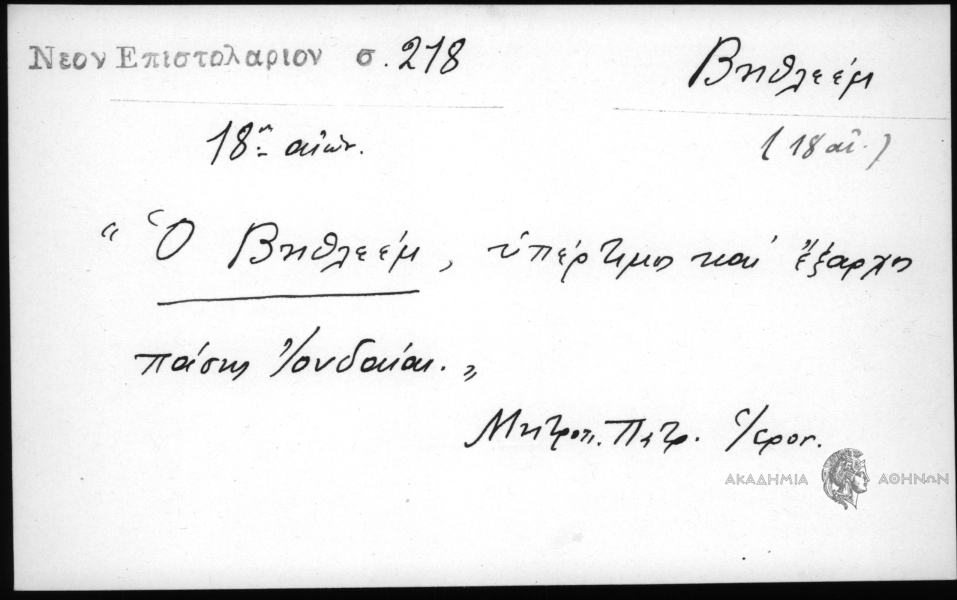 Νεον Επιστολαριον σ. 218
Βηθλεέμ
18ος αἰών.
(18 αἰ.)
“Ὁ Βηθλεέμ, ὑπέρτιμος καὶ ἔξαρχος
πάσης Ἰουδαίας.„
Μητροπ. Πατρ. Ἱερος.
ΑΚΑΔΗΜΙΑ ΑΘΗΝΩΝ